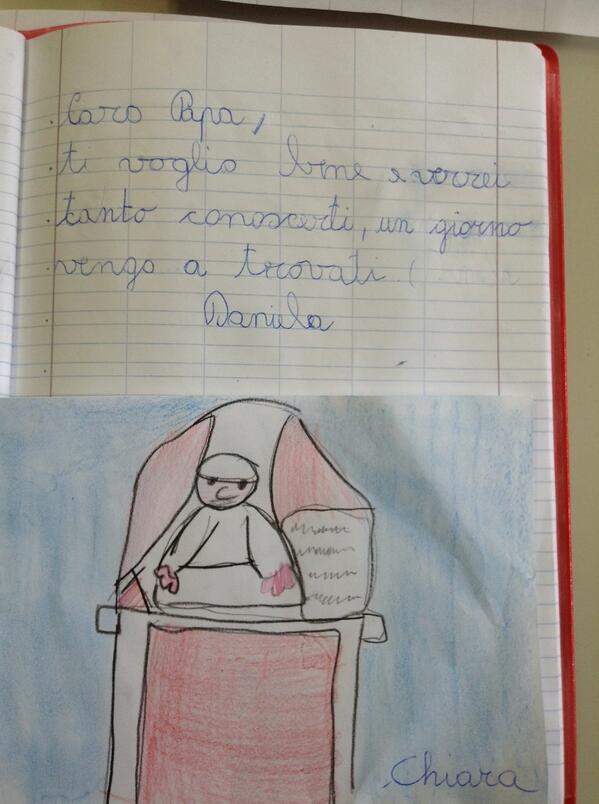 Caro Papa,
ti voglio bene e vorrei
tanto conoscerti, un giorno
vengo a trovati
Daniela
Chiara